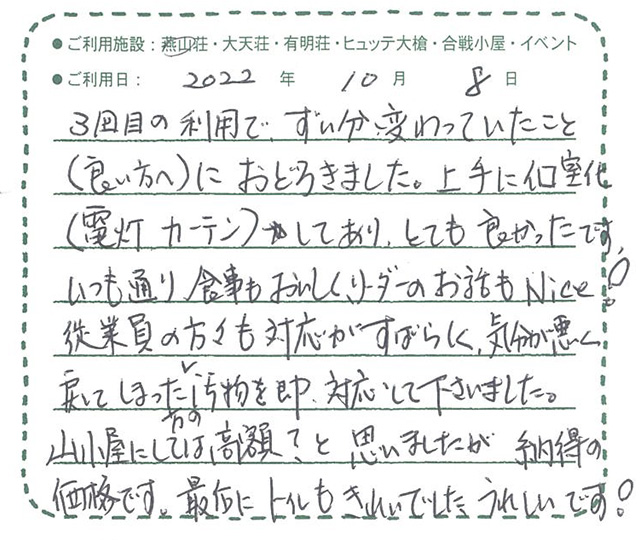 ●ご利用施設：燕山荘・大天荘・有明荘・ヒュッテ大槍・合戦小屋・イベント
●ご利用日： 2022 年 10 月 8 日
3回目の利用で、ずい分、変わっていたこと
(良い方へ)に おどろきました。上手に個室化
(電灯 カーテン) してあり、とても 良かったです。
いつも通り、食事もおいしく、リーダーのお話も Nice!
従業員の方々も対応がすばらしく、気分が悪く
戻してしまった方の汚物を即、対応して下さいました。
山小屋にしては高額？と 思いましたが 納得の
価格です。最后に トイレも きれいでした、うれしいです！